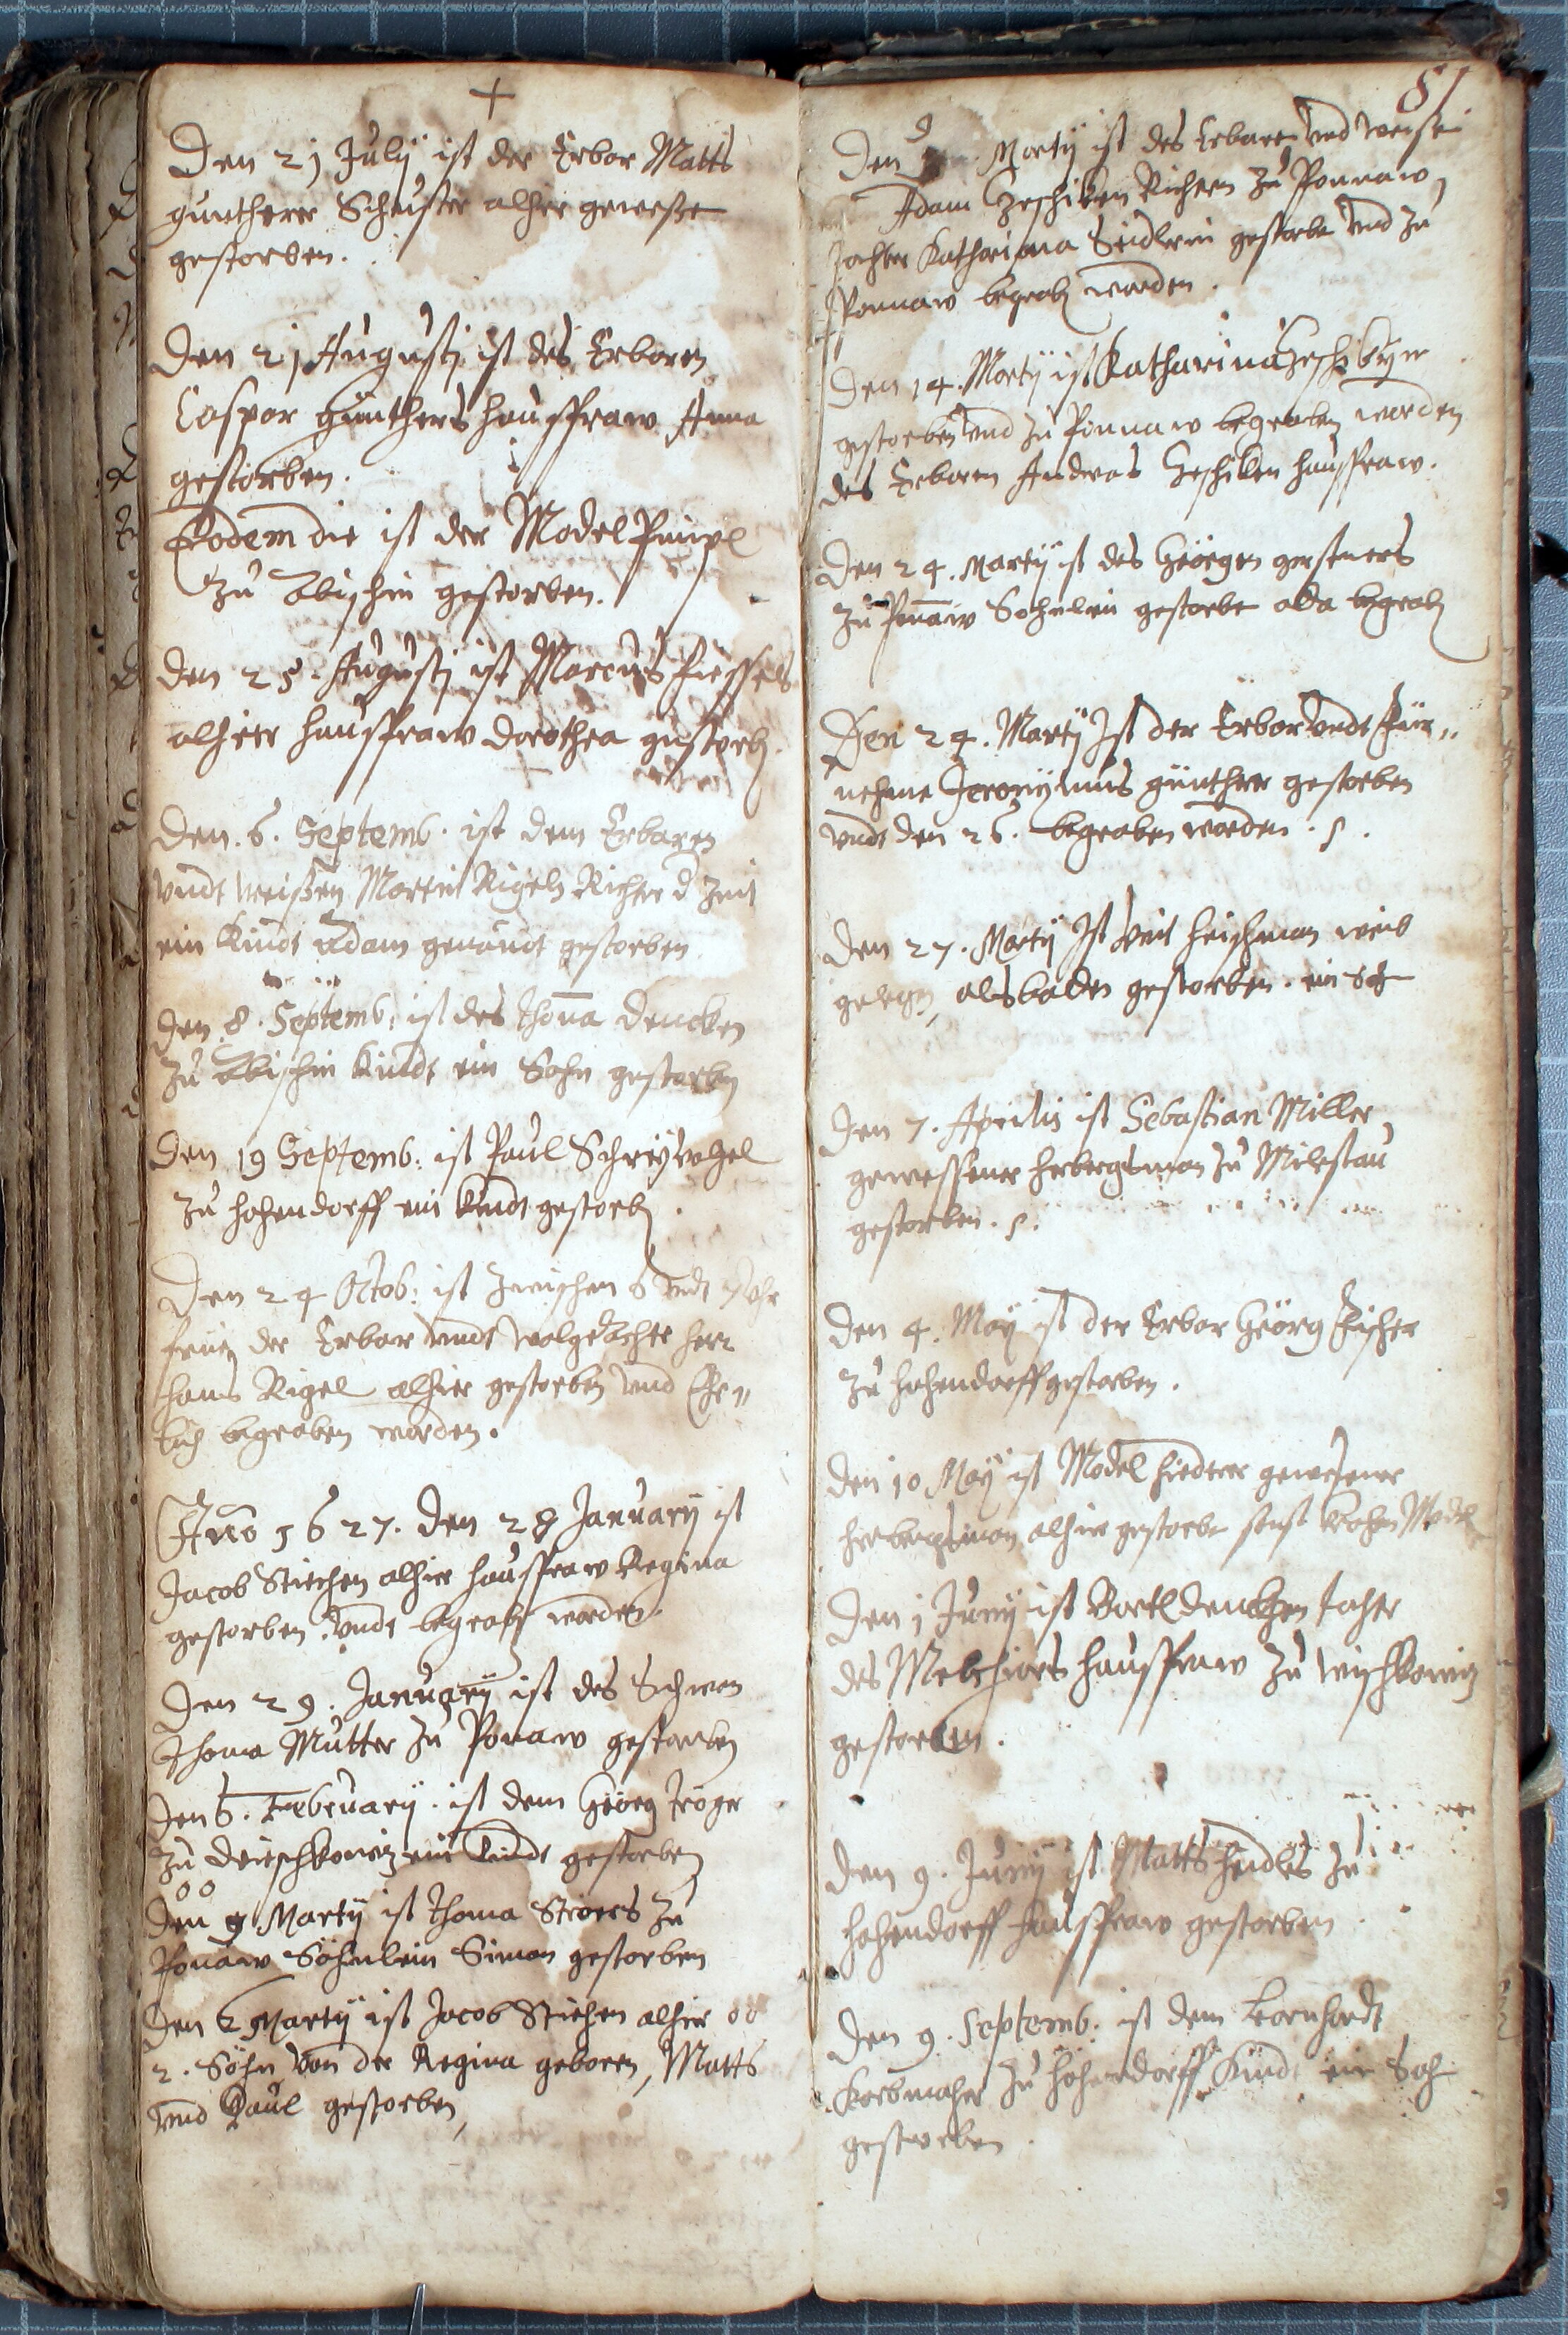 +
Den 21 July ist der Erbar Matts
günther Schuster alhier geweße
gestorben.
Den 21 Augusti ist des Erbaren
Caspar günthers haußfraw Anna
gestorben.
Eodem die ist der Model
zu gestorben.
Den 25. Augusti ist Marcus
alhier haußfraw Dorothea gestorb
Den 6. Septemb. ist dem Erbaren
vndt weißen Martin Rigeln Richter d Zeit
ein Kindt Adam genandt gestorben
Den 8. Septemb: ist des Thoma Dencken
zu Kindt ein Sohn gestorben
Den 19 Septemb: ist Paul Schreyvogel
zu hohendorff ein Kindt gestorb.
Den 24 Octob: ist zwischen 6 vndt 7 vhr
frue der Erbar vndt wolgeachte herr
hans Rigel alhier gestorben vnd Ehr„
lich begraben worden.
Año 1627. den 28 January ist
Jacob Stiechen alhier haußfraw Regina
gestorben vndt begrab worden.
Den 29. January ist des Schwan
Thoma Mutter zu Ponaw gestorben
Den 6. February. ist dem Georg Tröger
zu ein Kindt gestorben
Den 9 Marty ist Thoma Ströers zu
Ponaw Söhnlein Simon gestorben
Den 2 Marty ist Jacob Stiechen alhier
2. Söhn von der Regina geboren, Matts
vnd Paul gestorben,
81
Den 9 Marty ist des Erbaren vnd weise
Adam Geschiken Richern zu Ponnaw,
Tochter Katharina Seidlerin gestorbe vnd zu
Ponnaw begrab worden.
Den 14. Marty ist Katharina
gestorben vnd zu Ponnaw begraben worden
des Erbarn Andreas Geschiken haußfraw.
Den 24. Marty ist des Geörgen
zu Ponaw Söhnlein gestorbe begrab
Den 24. Marty Ist der Erbar vndt für„
nehme Jeronymus günther gestorben
vndt den 26. begraben worden.
Den 27. Marty Ist Veit weib
gelegen, alsbalden gestorben. ein
Den 7. Aprilis ist Sebastian Miller,
gewessener herbergsman zu Milestau
gestorben.
Den 4. May ist der Erbar Geörg Fischer
zu hohendorff gestorben.
Den 10 May ist Model gewesener
herbergsman alhier gestorbe sonst Model
Den 1 Juny ist Bartl Dencken Tochter
des Melchiors haußfraw zu
gestorben.
Den 9. Juny ist Matts zu
hohendorff haußfraw gestorben
Den 9. Septemb: ist dem
Korbmacher zu höhendorff Kindt ein Soh
gestorben.